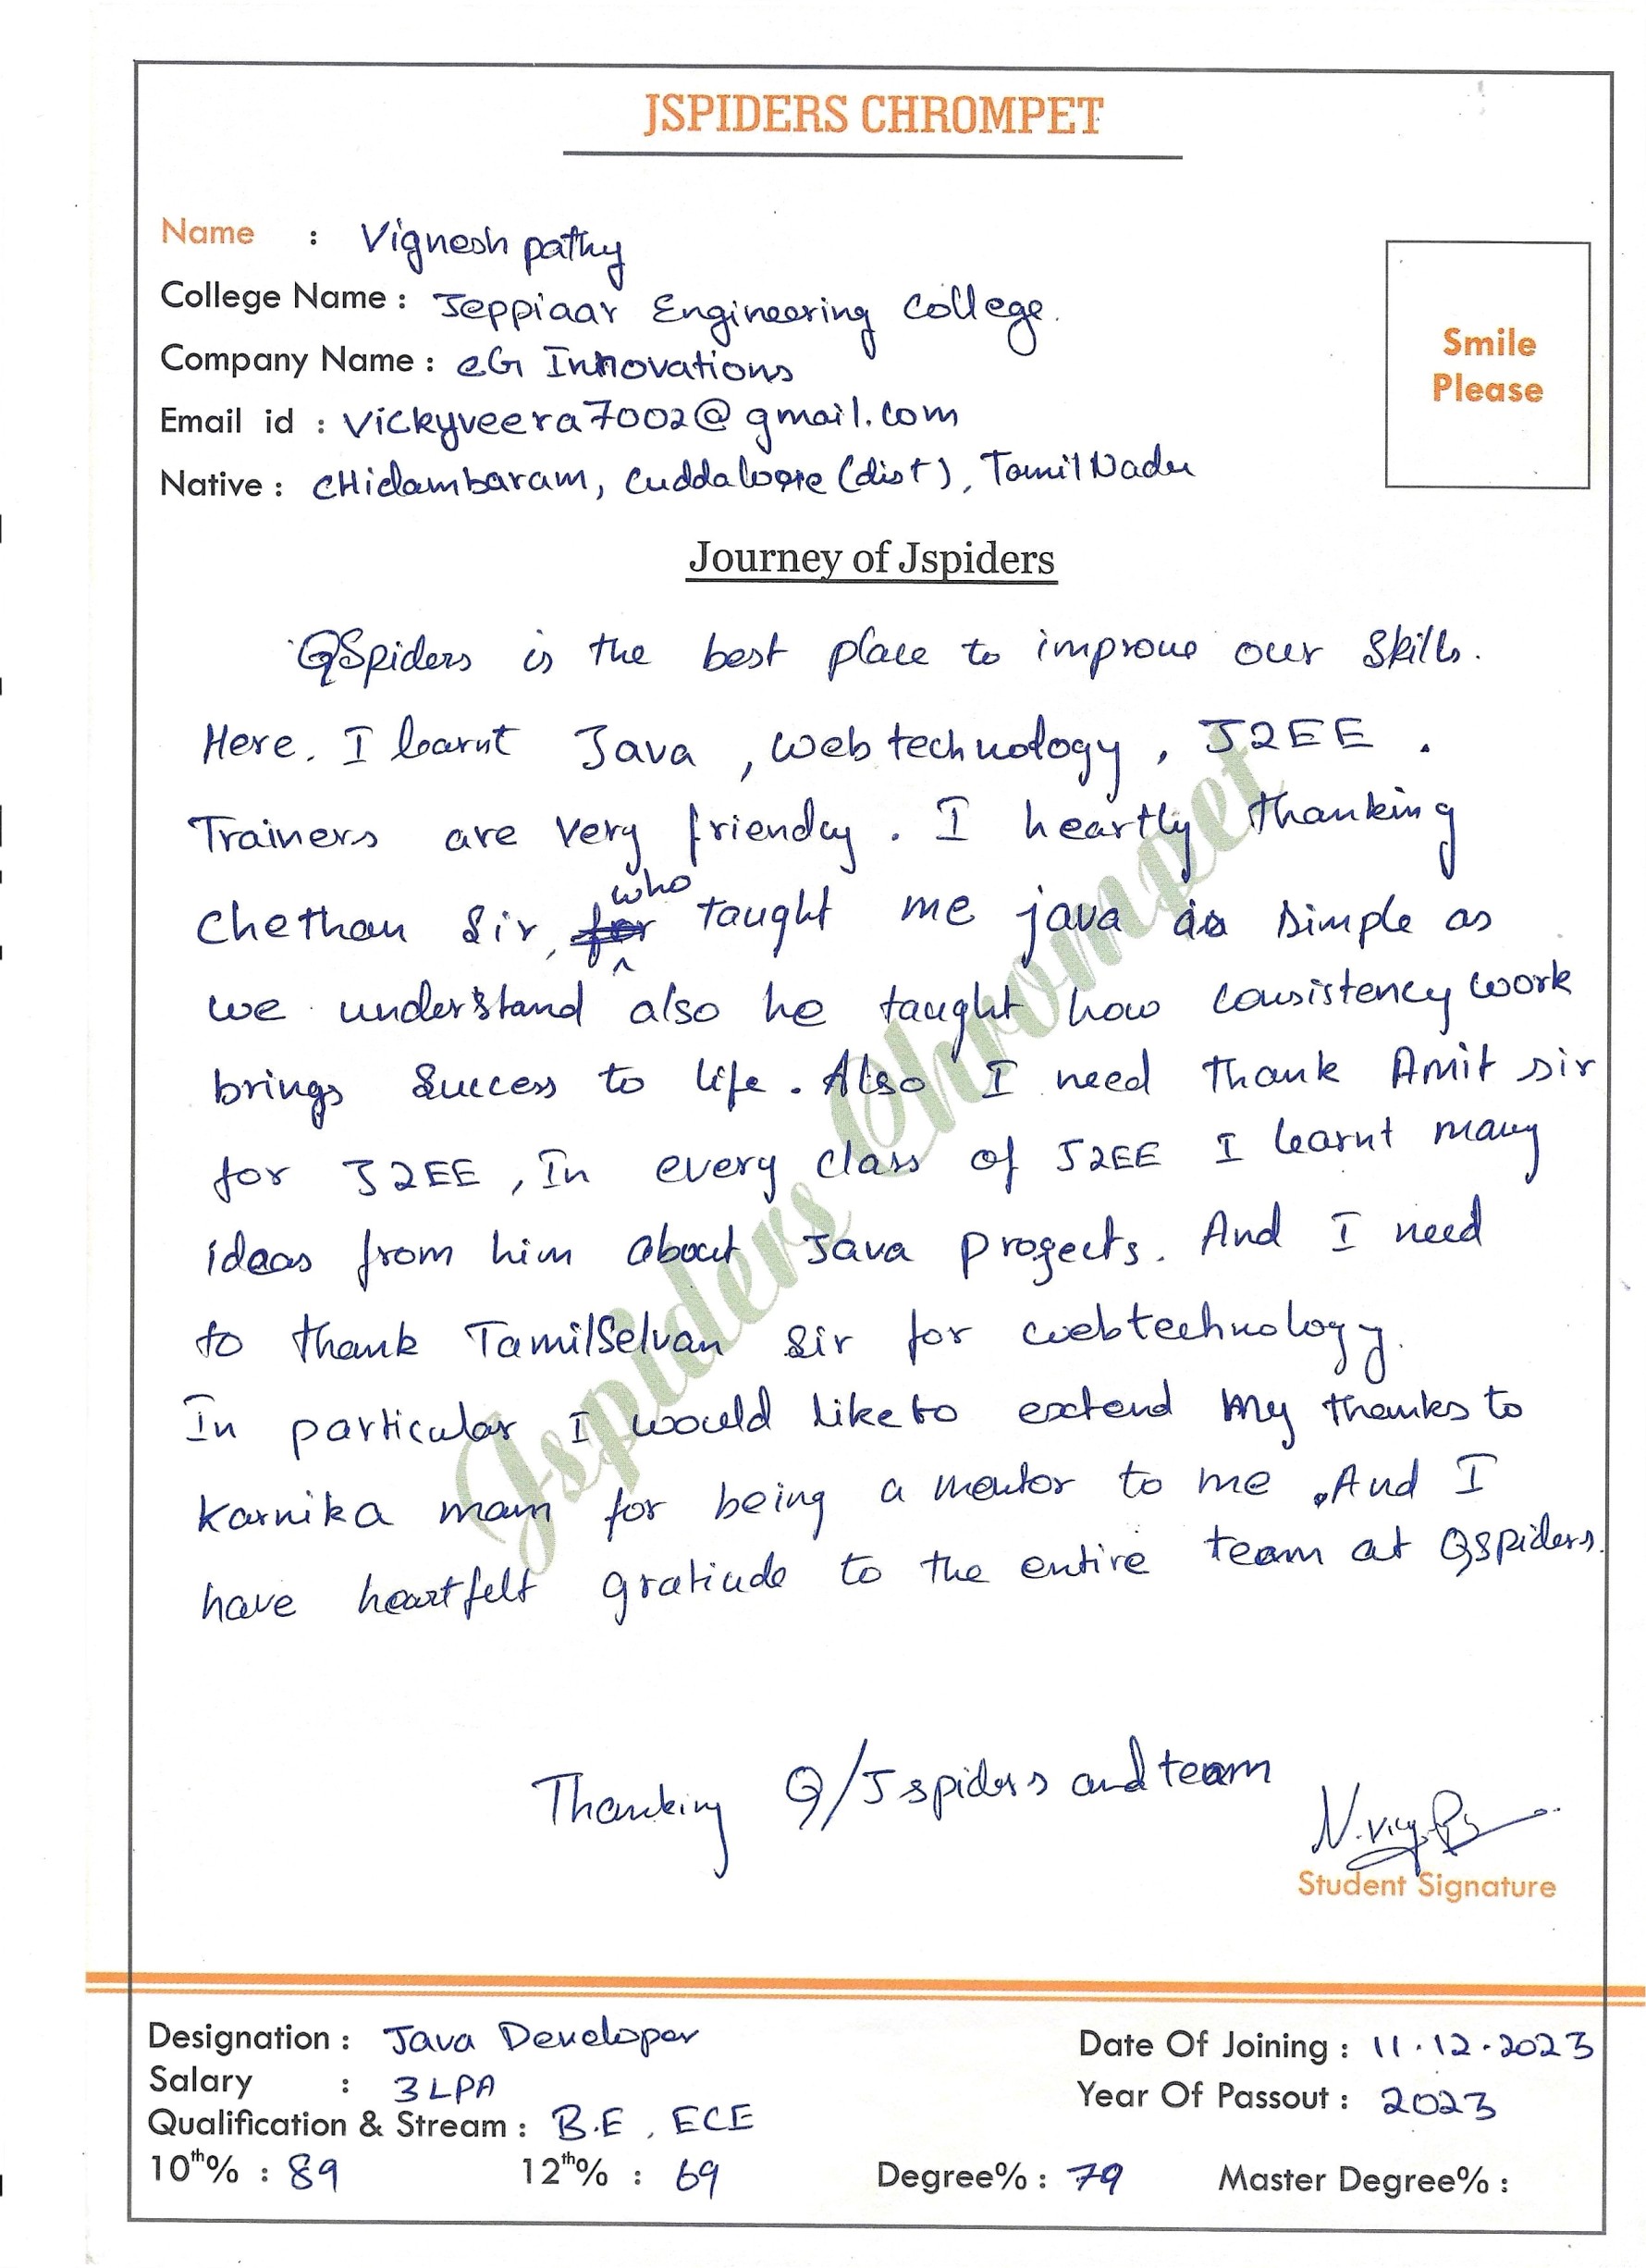 JSPIDERS CHROMPET
Name : Vignesh pathy
College Name : Jeppiaar Engineering College.
Company Name : eG Innovations
Smile
Please
Email id : Vickyveera7002@gmail.com
Native : CHidambaram, Cuddaloore (dist), Tamil Nadu
Journey of Jspiders
QSpiders is the best place to improve our skills.
Here. I learnt Java, web technology, J2EE.
Trainers are very friendly. I heartly thanking
Chethan Sir, who taught me java as simple as
we understand also he taught how consistency work
brings success to life. Also I need thank Amit sir
for J2EE, In every class of J2EE I learnt many
ideas from him about Java progects. And I need
to thank TamilSelvan Sir for webtechnology.
In particular I would like to extend my thanks to
Karnika mam for being a mentor to me. And I
have heartfelt gratiude to the entire team at QSpiders.
Jspiders Chrompet
Thanking Q/Jspiders and team
Student Signature
Designation : Java Developer
Date Of Joining : 11.12.2023
Salary : 3 LPA
Year Of Passout : 2023
Qualification & Stream : B.E, ECE
10th% : 89 12th% : 69 Degree% : 79 Master Degree% :